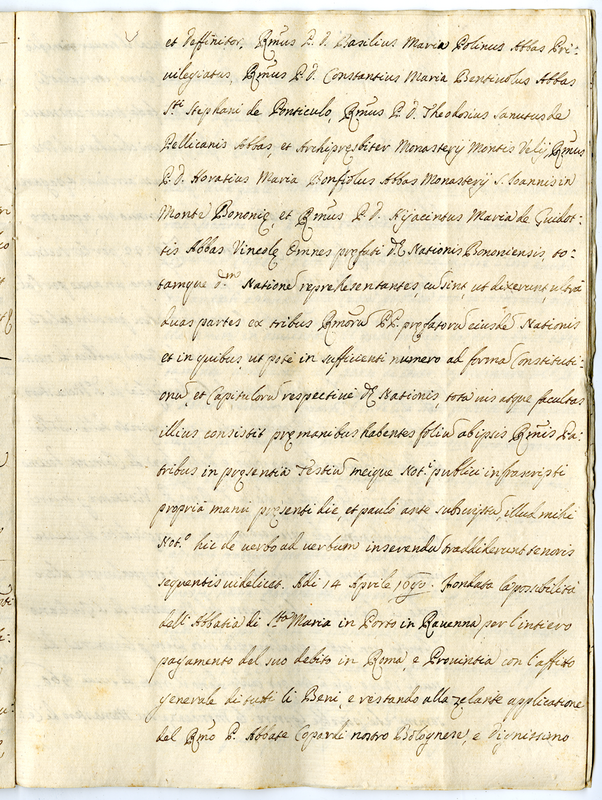 et Deffinitor, Rm̃us P. D. Basilius Maria Polinus Abbas Pri-
uilegiatus, Rm̃us P. D. Constantius Maria Bentiuolus Abbas
Sti Stephani de Ponticulo, Rm̃us P. D. Theodosius Sanutus de
Pellicanis Abbas, et Archipresbiter Monasterij Montis Velij, Rm̃us
P. D. Horatius Maria Bonfiolus Abbas Monasterij S. Ioannis in
Monte Bononię, et Rm̃us P. D. Hijacintus Maria de Guidot-
tis Abbas Omnes pręfati Nationis Bononiensis, to-
tamque d.m Natione represesentantes, cũ sint, ut dixerunt, ultra
duas partes ex tribus Rm̃orũ P.P. pręfatorũ eiusdẽ Nationis,
et in quibus, ut potè in sufficienti numero ad formã Constituti-
onũ, et Capitulorũ respectiuè Nationis, tota uis atque facultas
illius consistit prę manibus habentes foliũ ab ipsis Rm̃is Pa-
tribus in pręsentia Testiũ meique Not.i publici infrascripti
propria manu pręsenti die, et paulò ante subscriptũ, illud mihi
Not.o hic de uerbo ad uerbum inserendũ tradiderunt tenoris
sequentis uidelicet. Adi 14 Aprile Fondata la possibilità
dell'Abbatia di Sta Maria in Porto in Rauenna per l'intiero
pagamento del suo debito in Roma, e Prouintia con l'affitto
generale di tutti li Beni, e restando alla zelante applicatione
del Rm̃o P. Abbate Copardi nostro Bolognese, e Dignissimo